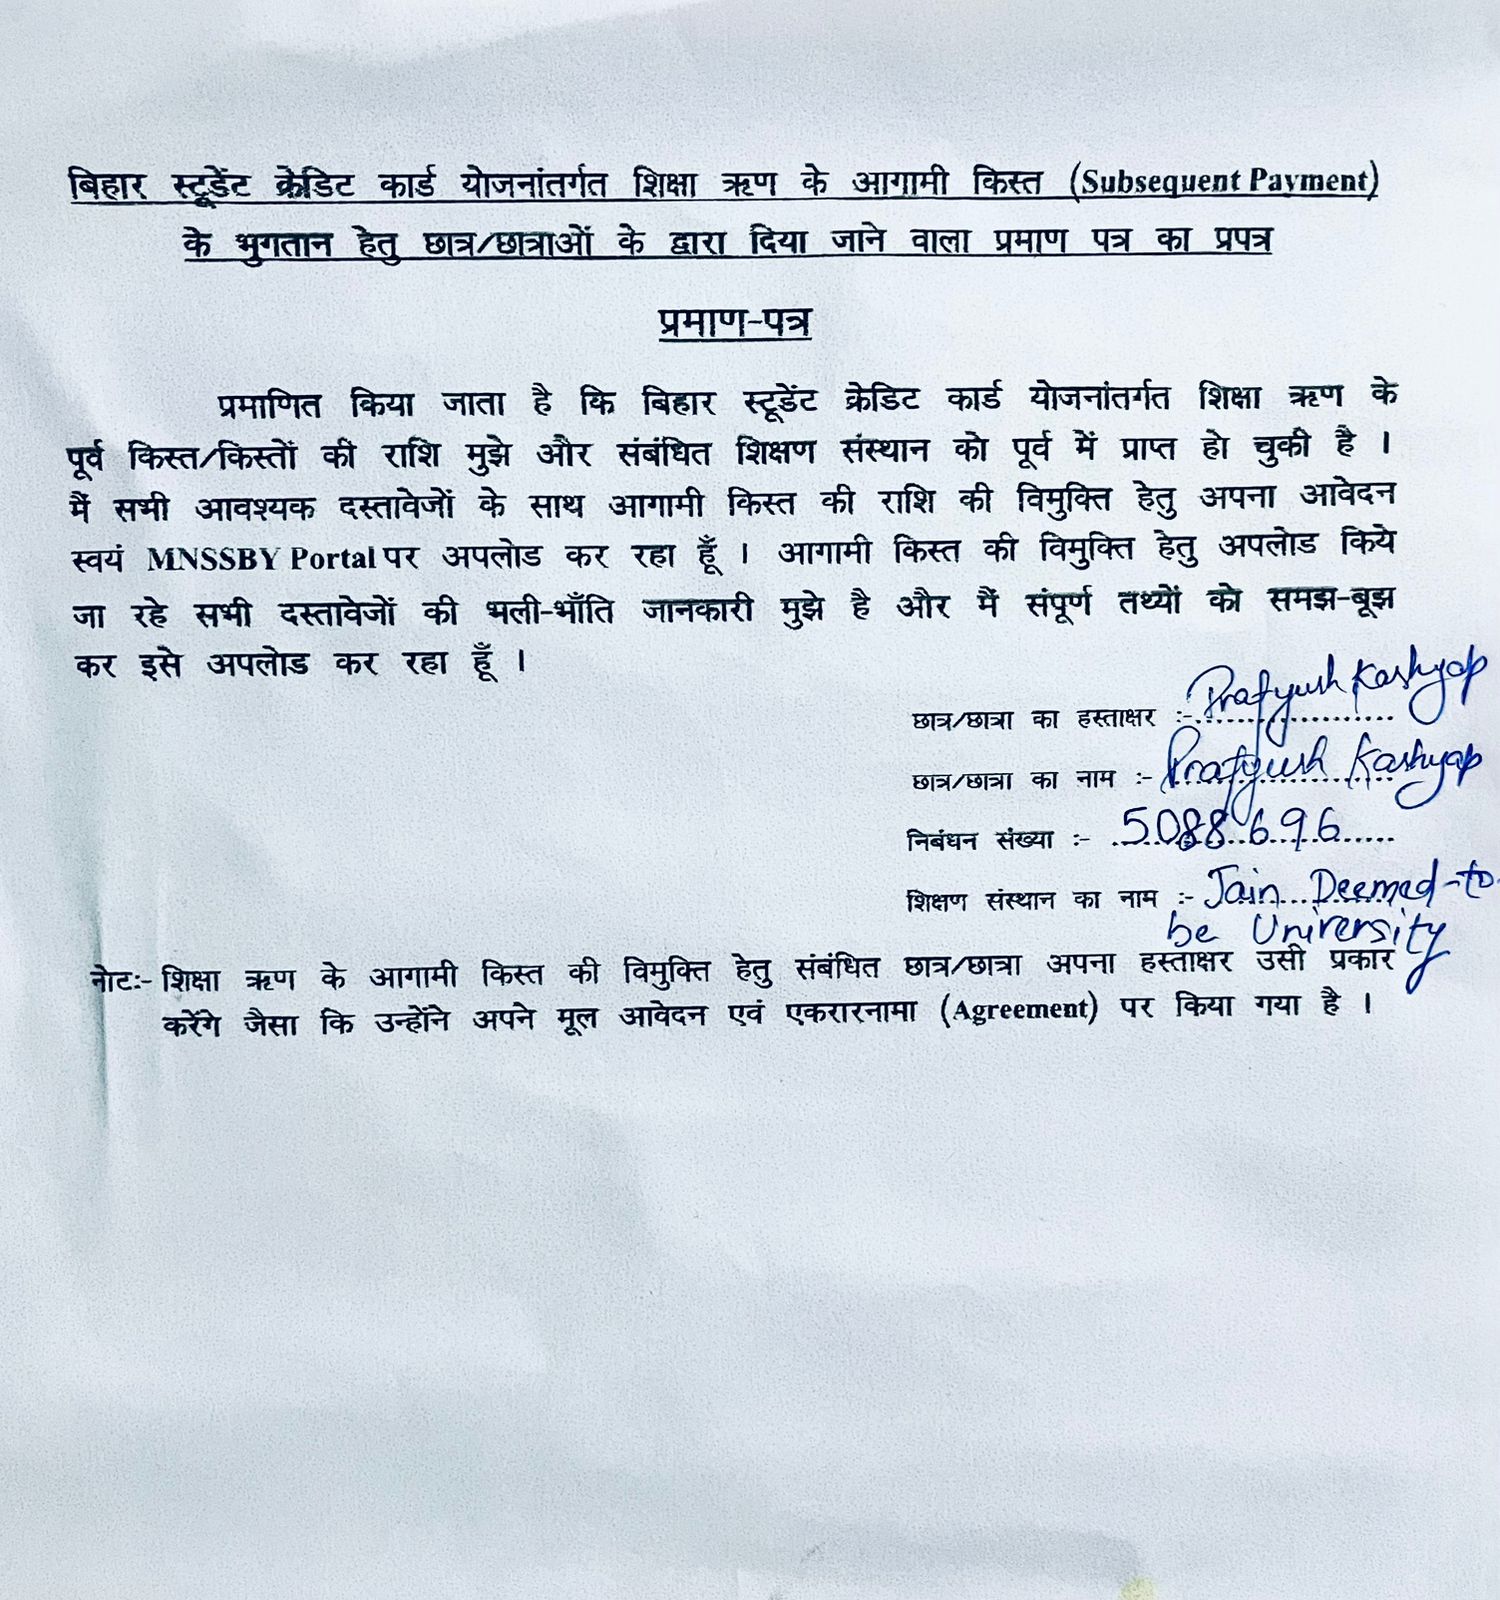 बिहार स्टूडेंट क्रेडिट कार्ड योजनांतर्गत शिक्षा ऋण के आगामी किस्त (Subsequent Payment)
के भुगतान हेतु छात्र/छात्राओं के द्वारा दिया जाने वाला प्रमाण पत्र का प्रपत्र
प्रमाण-पत्र
प्रमाणित किया जाता है कि बिहार स्टूडेंट क्रेडिट कार्ड योजनांतर्गत शिक्षा ऋण के
पूर्व किस्त/किस्तों की राशि मुझे और संबंधित शिक्षण संस्थान को पूर्व में प्राप्त हो चुकी है ।
मैं सभी आवश्यक दस्तावेजों के साथ आगामी किस्त की राशि की विमुक्ति हेतु अपना आवेदन
स्वयं MNSSBY Portal पर अपलोड कर रहा हूँ । आगामी किस्त की विमुक्ति हेतु अपलोड किये
जा रहे सभी दस्तावेजों की भली-भाँति जानकारी मुझे है और मैं संपूर्ण तथ्यों को समझ-बूझ
कर इसे अपलोड कर रहा हूँ ।
छात्र/छात्रा का हस्ताक्षर :- Pratyush Kashyap
छात्र/छात्रा का नाम :- Pratyush Kashyap
निबंधन संख्या :- 5088696
शिक्षण संस्थान का नाम :- Jain Deemed-to-
be University
नोट:- शिक्षा ऋण के आगामी किस्त की विमुक्ति हेतु संबंधित छात्र/छात्रा अपना हस्ताक्षर उसी प्रकार
करेंगे जैसा कि उन्होंने अपने मूल आवेदन एवं एकरारनामा (Agreement) पर किया गया है ।